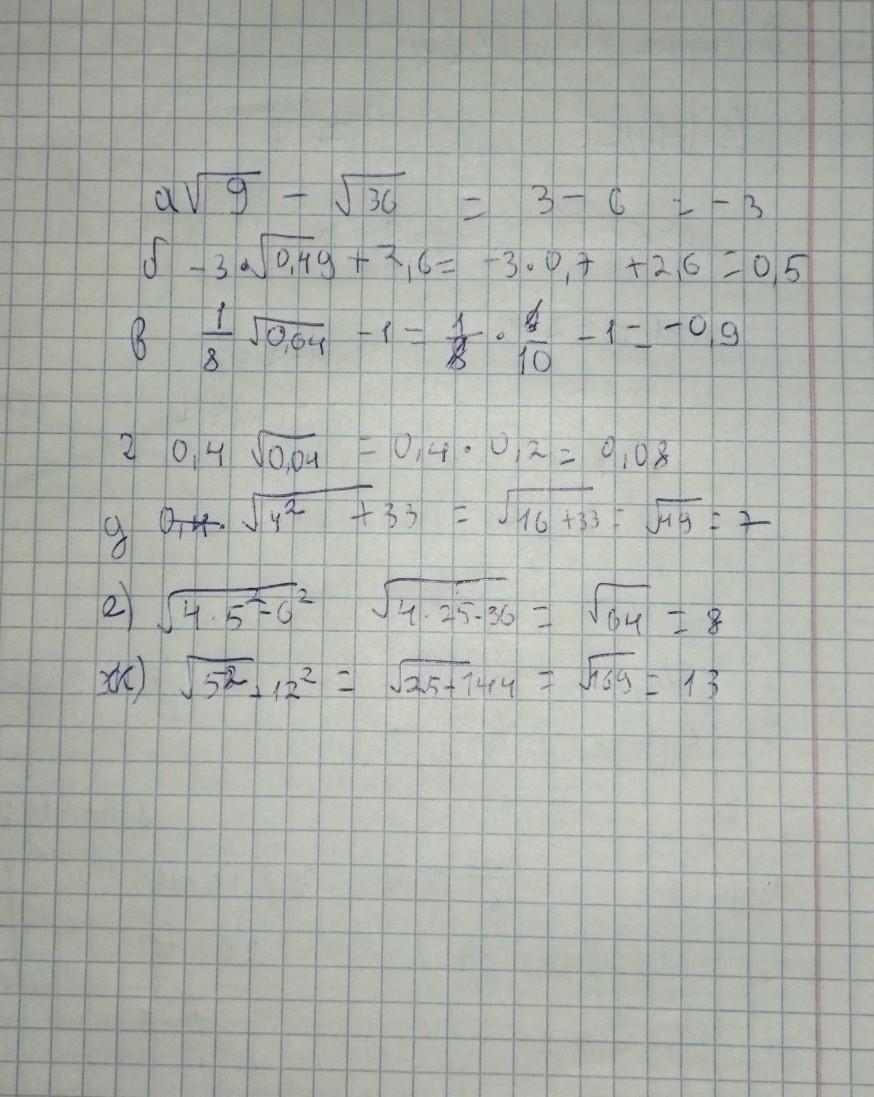 а √9 − √36 = 3 − 6 = −3
б −3·√0,49 + 2,6 = −3·0,7 + 2,6 = 0,5
в 1/8 √0,64 − 1 = 1/8 · 8/10 − 1 = −0,9
г 0,4 √0,04 = 0,4 · 0,2 = 0,08
д √4² + 33 = √16 + 33 = √49 = 7
е) √4 · 5² − 6² √4 · 25 − 36 = √64 = 8
ж) √5² + 12² = √25 + 144 = √169 = 13